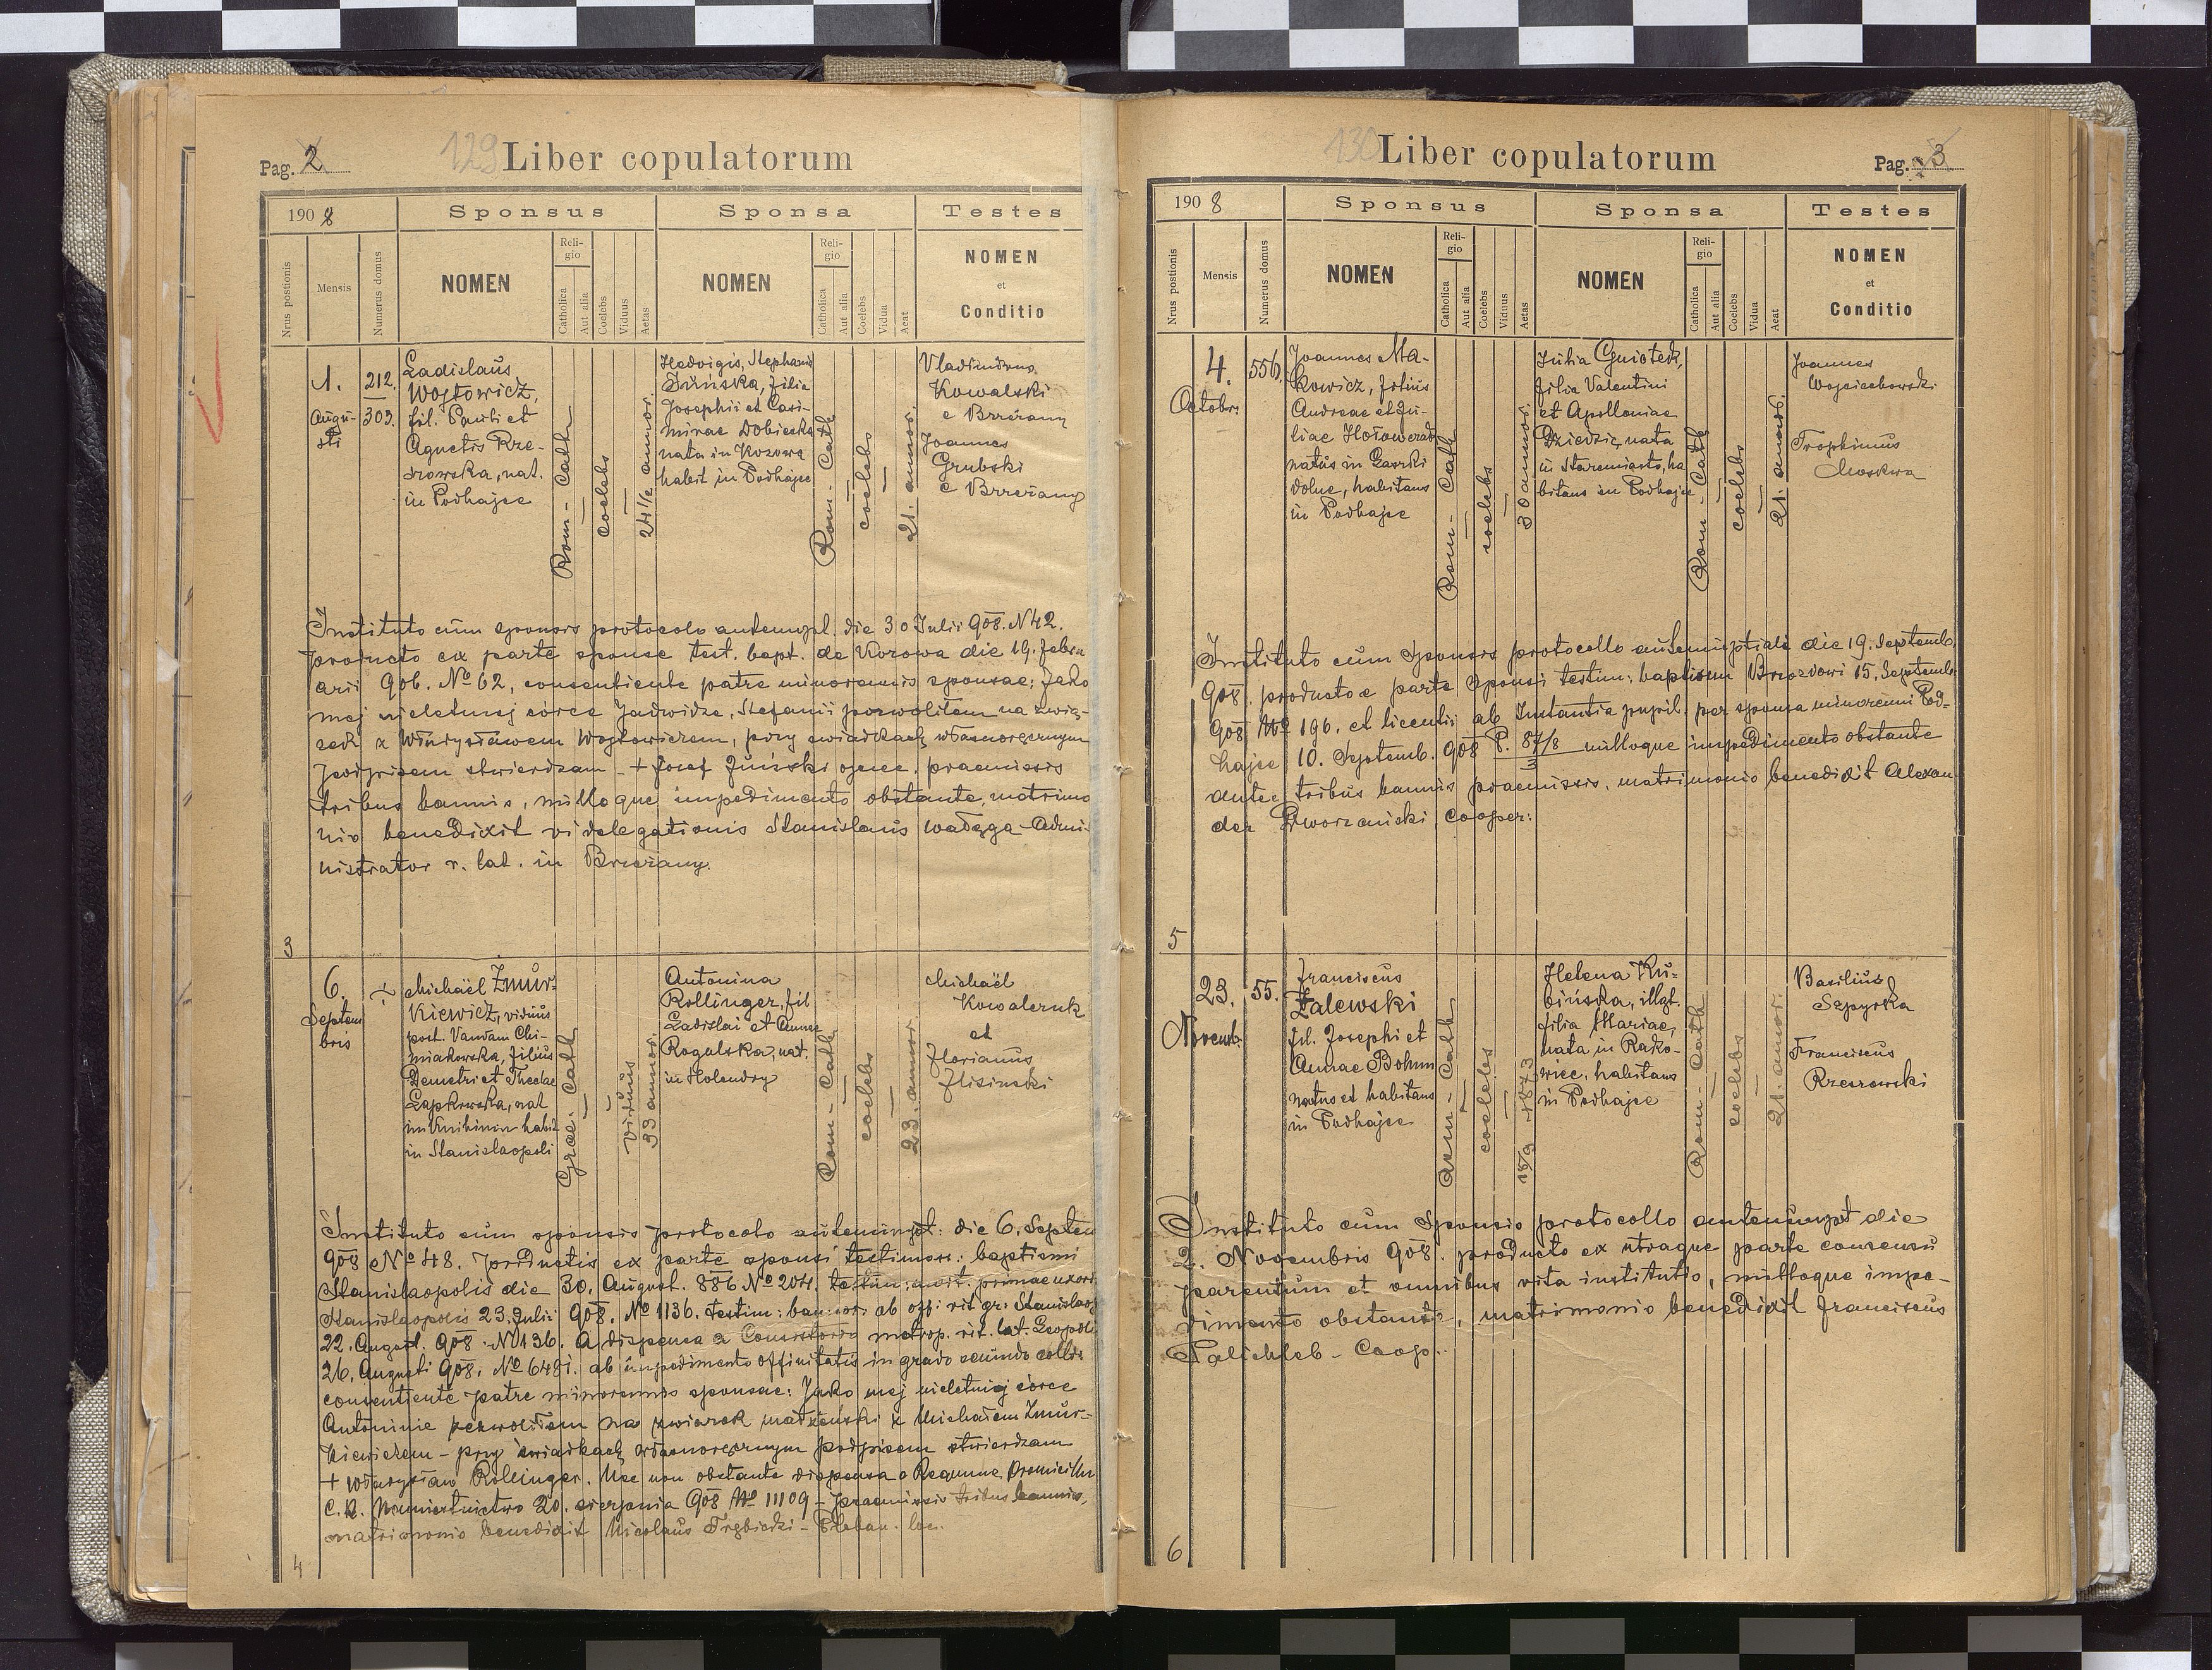 Pag. 2
129
Liber copulatorum
1908
Sponsus
Sponsa
Testes
Nrus postionis
Mensis
Numerus domus
NOMEN
Religio
Catholica
Aut alia
Coelebs
Viduus
Aetas
NOMEN
Religio
Catholica
Aut alia
Coelebs
Vidua
Aeat
NOMEN
et
Conditio
3
1.
Augu-
sti
212.
303.
Ladislaus
Wojtowicz,
fil. Pauli et
Agnetis Rze-
szowska, nat.
in Podhajce
Rom - Cath
Coelebs
24 1/2 annor.
Hedvigis, Stephania
Żuńska, filia
Josephi et Casi-
mirae Dobiecka
nata in Kozowa
habit in Podhajce
Rom - Cath
coelebs
21. annor.
Vladimirus
Kowalski
e Brzeżany
Joannes
Grubski
e Brzeżany
Instituto cum sponsis protocolo antenupt. die 30 Julii 908. N 42.
producto ex parte sponse test. bapt. de Kozowa die 19. febru
arii 906. No 62, consentiente patre minorennis sponsae: Jako
mej nieletniej córce Jadwidze, Stefanii pozwoliłem na zwią-
zek z Władysławem Wojtowiczem, przy świadkach własnoręcznym
podpisem stwierdzam - + Józef Żuński ojciec. praemissis
tribus bannis, nulloque impedimento obstante, matrimo
nio benedixit vi delegationis Stanislaus Wałęga - Admi-
nistrator r. lat. in Brzeżany.
4
6.
Septem
bris
Michaël Żmur-
kiewicz, viduus
post. Vandam Chi-
miakowska, filius
Demetri et Theclae
Łapkowska, nat
in Knihinin habit
in Stanislaopoli
Graec - Cath
viduus
33 annor.
Antonina
Rollinger, fil
Ladislai et Annae
Rogulska, nat.
in Holendry
Rom - Cath
coelebs
23. annor
Michaël
Kowalczuk
et
Florianus
Instituto cum sponsis protocolo antenupt: die 6. Septem
908 No 48. productis ex parte sponsi testimon: baptismi
Stanislaopolis die 30. August. 886. No 204. testim: mort. primae uxoris
Stanislaopolis 23. Julii 908. No 1136. testim: bannor: ab off: rit gr: Stanislaop
22. August. 908. N 136. A dispensa a Consistorio metrop. rit. lat. Leopoli
26. Augusti 908. No 6481. ab impedimento affinitatis in grado secundo
consentiente patre minorennis sponsae: Jako mej nieletniej córce
Antoninie pozwoliłem na związek małżeński z Michałem Żmur-
kiewiczem - przy świadkach własnoręcznym podpisem stwierdzam
+ Władysław Rollinger. Nec non obstante dispensa
C. K. Namiestnictwo 20. sierpnia 908 No 11109 - praemissis tribus bannis,
matrimonio benedixit Nicolaus Trębicki - Pleban. loc.
130
Liber copulatorum
Pag. 3
1908
Sponsus
Sponsa
Testes
Nrus postionis
Mensis
Numerus domus
NOMEN
Religio
Catholica
Aut alia
Coelebs
Viduus
Aetas
NOMEN
Religio
Catholica
Aut alia
Coelebs
Vidua
Aeat
NOMEN
et
Conditio
5
4.
Octobr:
556.
Joannes Ma-
kowicz, filius
Andreae et Ju-
liae Hołowczak
natus in Łaszki
dolne, habitans
in Podhajce
Rom - Cath
coelebs
30 annor.
Julia
filia Valentini
et Apolloniae
Dziedzic, nata
in Staremiasto, ha
bitans in Podhajce
Rom - Cath
coelebs
21. annor.
Joannes
Wojciechowski
Trophimus
Moskwa
Instituto cum Sponsis protocollo antenuptiali die 19. Septemb.
908. producto e parte Sponsi testim: baptism Brzozdowi 15. Septemb
908 No 196. et licentii ab Instantia pupil. per sponsa minorenni Pod-
hajce 10. Septemb. 908 P. 87/8 nulloque impedimento obstante
3
antec tribus bannis praemissis. matrimonio benedixit Alexan
der Dworzanicki Cooper:
6
23.
Novemb:
55.
Franciscus
Zalewski
fil. Josephi et
Annae Bohm
natus et habitans
in Podhajce
Rom - Cath
coelebs
Helena Ku-
bińska, illgt.
filia Mariae,
nata in Rako-
wiec, habitans
in Podhajce
Rom - Cath
coelebs
21. annor.
Basilius
Szpyrka
Franciscus
Rzeszowski
Instituto cum Sponsis protocollo antenupt die
2. Novembris 908. producto ex utraque parte consensu
parentum et omnibus rita institutis, nulloque impe-
dimento obstante, matrimonio benedixit Franciscus
Palichleb - Coop.